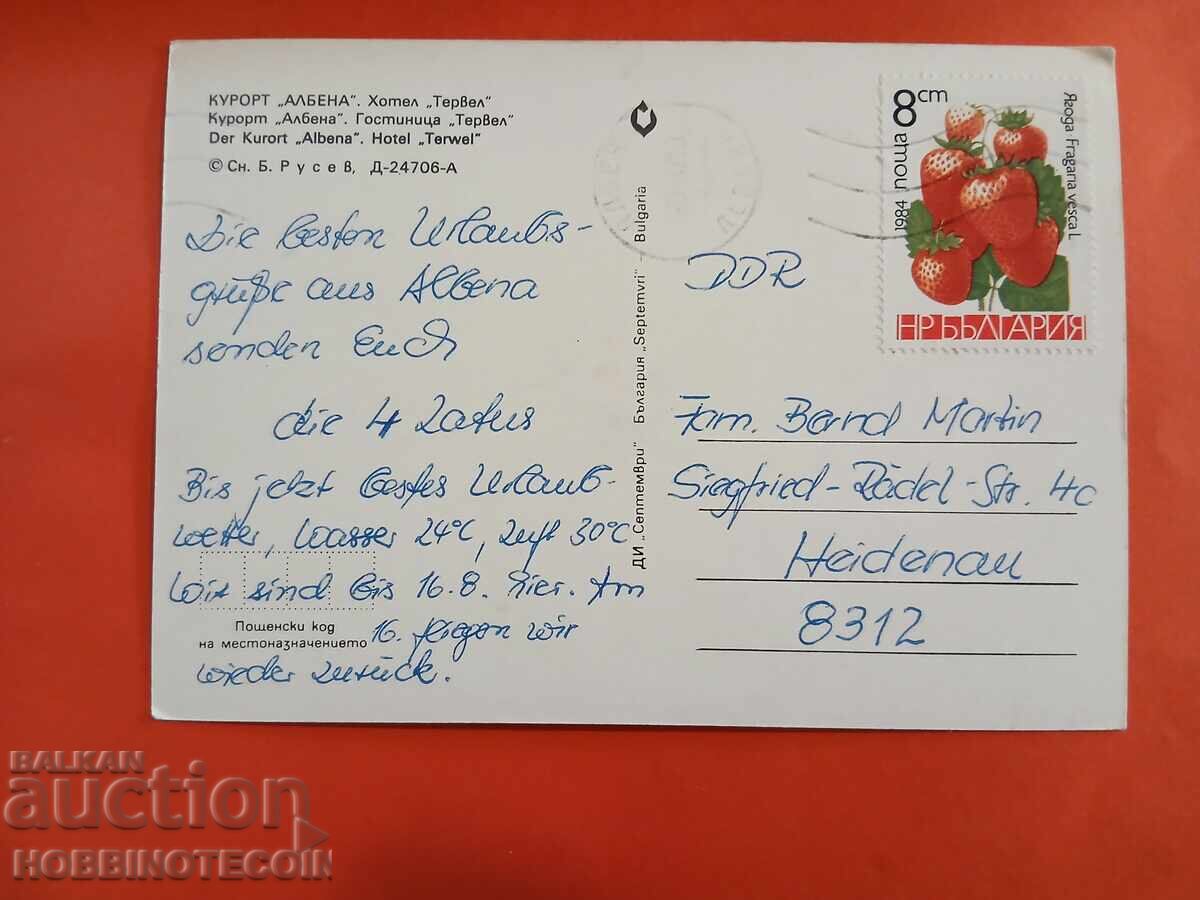 КУРОРТ „АЛБЕНА". Хотел „Тервел"
Курорт „Албена". Гостиница „Тервел"
Der Kurort „Albena". Hotel „Terwel"
© Сн. Б. Русев, Д-24706-А
Die besten Urlaubs-
grüße aus Albena
senden Euch
die 4 Zatus
Bis jetzt bestes Urlaub-
wetter, Wasser 24°C, Luft 30°C
Wir sind bis 16.8. hier. Am
Пощенски код
на местоназначението
16. fliegen wir
wieder zurück.
ДИ „Септември" България „Septemvri" - Bulgaria
8 ст
1984 поща
Ягода Fragaria vesca L.
НР БЪЛГАРИЯ
DDR
Fam. Bernd Martin
Siegfried-Rädel-Str. 4c
Heidenau
8312
BALKAN
auction
HOBBINOTECOIN